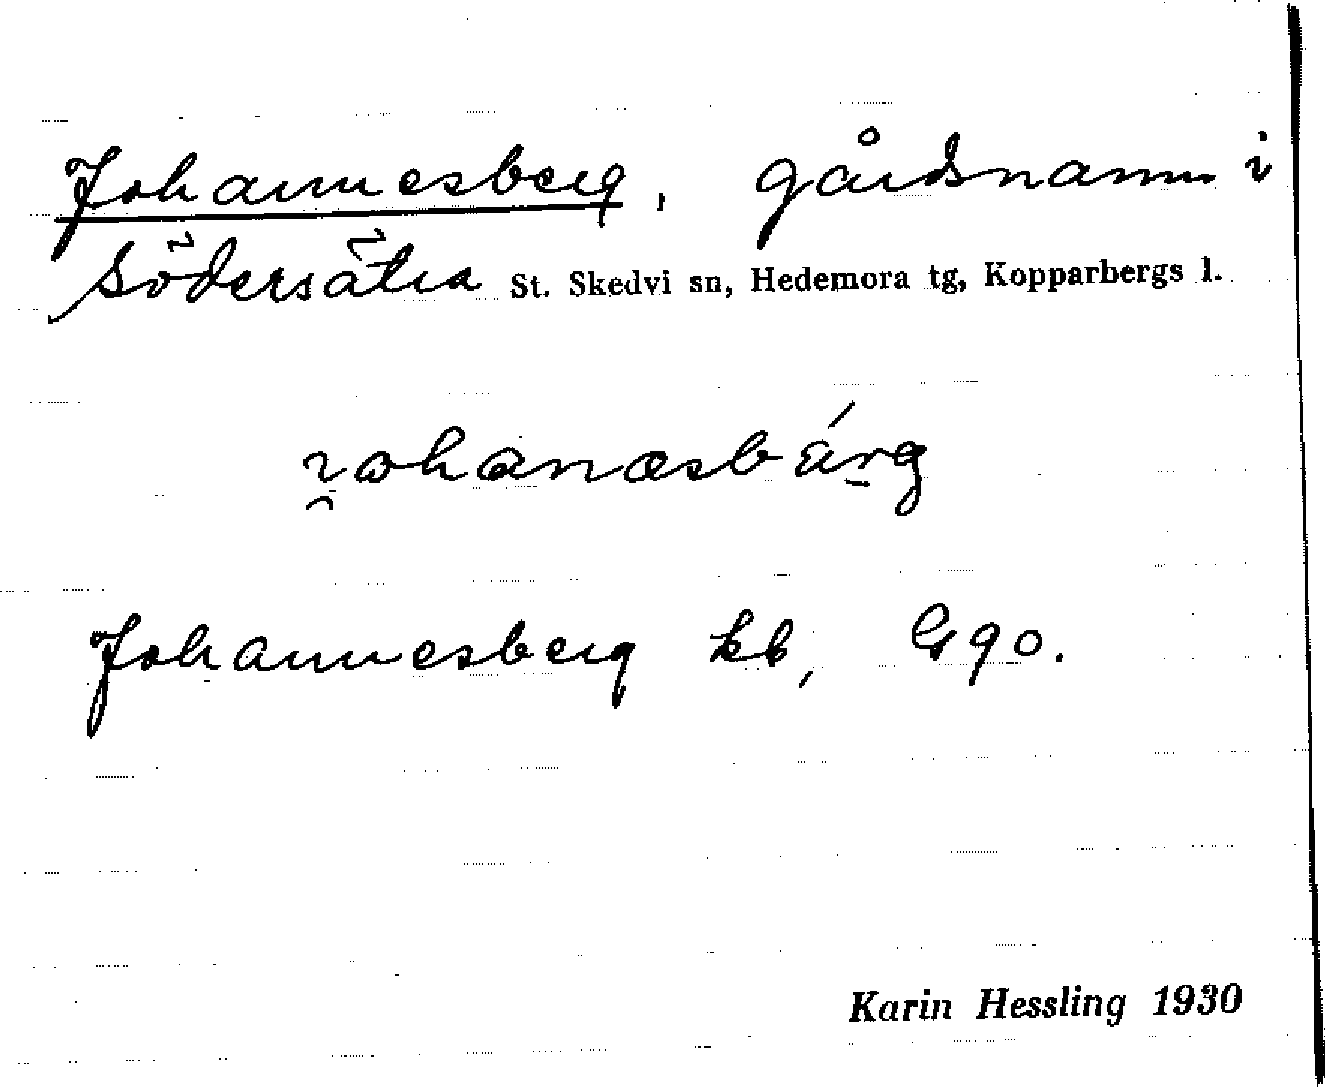 Johannesberg, gårdsnamn i
Södersätra St. Skedvi sn, Hedemora tg, Kopparbergs l.
Johannesberg kb, Ggo.
Karin Hessling 1930